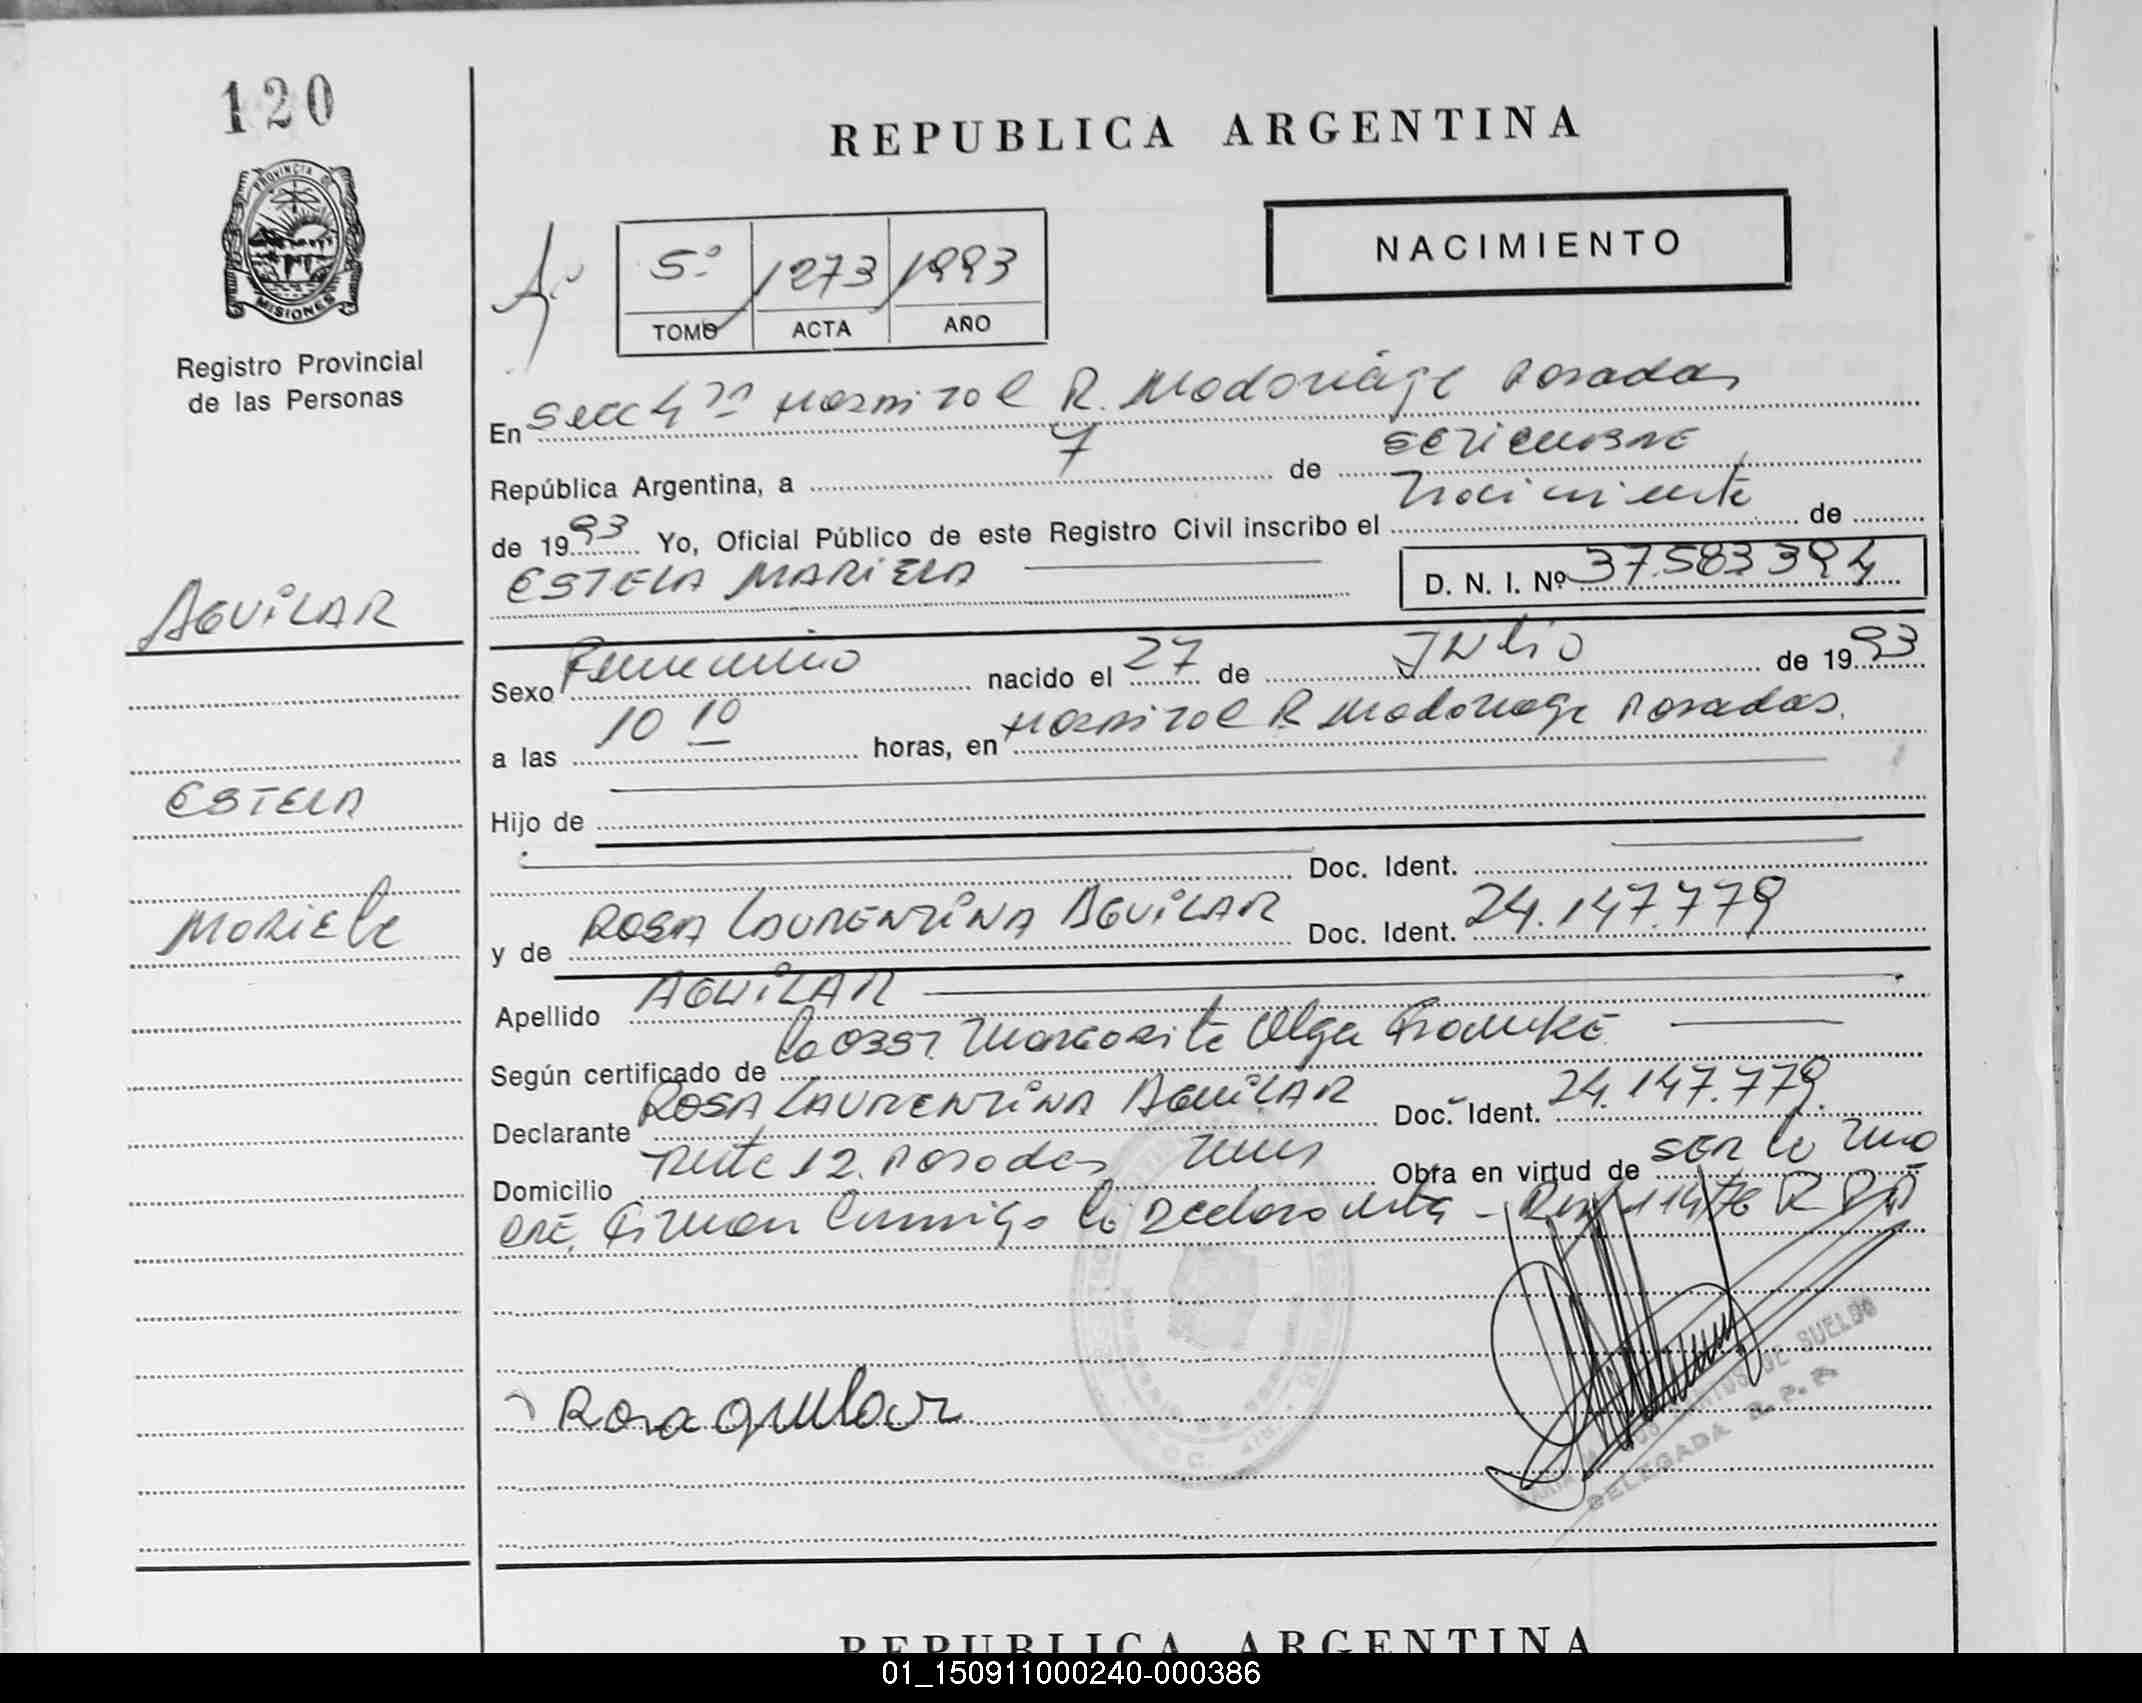 120
PROVINCIA DE
MISIONES
Registro Provincial
de las Personas
REPUBLICA ARGENTINA
NACIMIENTO
5º 1273 1993
TOMO ACTA AÑO
En Secc 4ª Hospital R. Madariaga Posadas
República Argentina, a 7 de SETIEMBRE
de 1993 Yo, Oficial Público de este Registro Civil inscribo el Nacimiento de
ESTELA MARIELA D. N. I. Nº 37.583.394
AGUILAR
Sexo Femenino nacido el 27 de JULIO de 1993
a las 10 10 horas, en Hospital R Madariaga Posadas.
ESTELA
Hijo de
Doc. Ident.
MARIELA
y de ROSA LAURENTINA AGUILAR Doc. Ident. 24.147.779
Apellido AGUILAR
Según certificado de la Obst. Margarita Olga Franke
Declarante ROSA LAURENTINA AGUILAR Doc. Ident. 24.147.779.
Domicilio Ruta 12. Posadas Mnes Obra en virtud de SER la ma
dre. Firman conmigo la declarante - 114/76 R
Rosa aguilar
DEL SUELDO
DELEGADA R.P.P.
REPUBLICA ARGENTINA
01_150911000240-000386